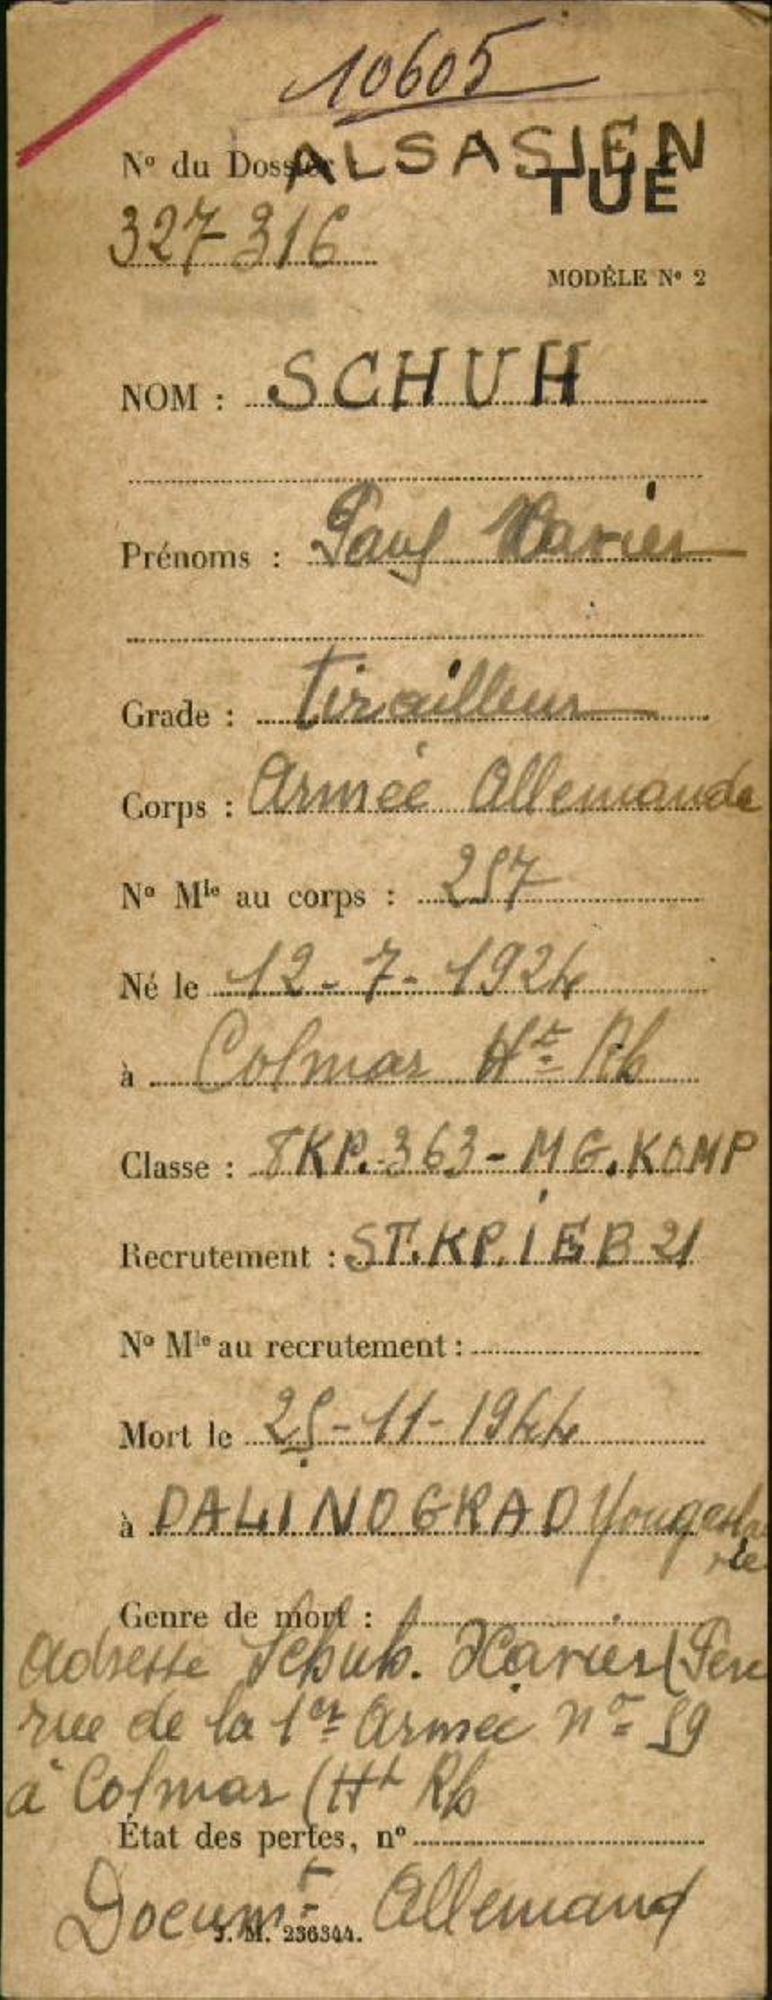 10605
N° du Dossier : ALSASIEN
TUÉ
327 316
MODÈLE N° 2
NOM : SCHUH
Prénoms : Paul Xavier
Grade : tirailleur
Corps : Armée Allemande
N° Mle au corps : 257
Né le 12-7-1924
à Colmar Ht Rh
Classe : 8KP.363-MG.KOMP
Recrutement : ST.KP.IEB 21
N° Mle au recrutement :
Mort le 25-11-1944
à DALINOGRAD Yougoslavie
Genre de mort :
Adresse Schuh. Xavier (Père
rue de la 1er Armée n° 59
à Colmar (Ht Rh
État des pertes, n°
Documt Allemand
J. M. 236344.